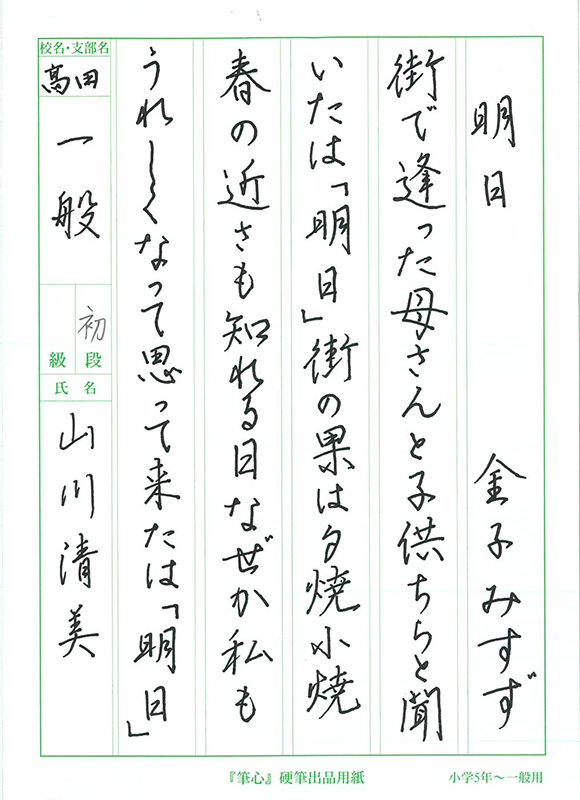 明日 金子みすず
街で逢った母さんと子供ちらと聞
いたは「明日」街の果は夕焼小焼
春の近さも知れる日なぜか私も
うれしくなって思って来たは「明日」
校名・支部名
高田
一般
初
級 段
氏名
山川清美
『筆心』硬筆出品用紙
小学5年〜一般用